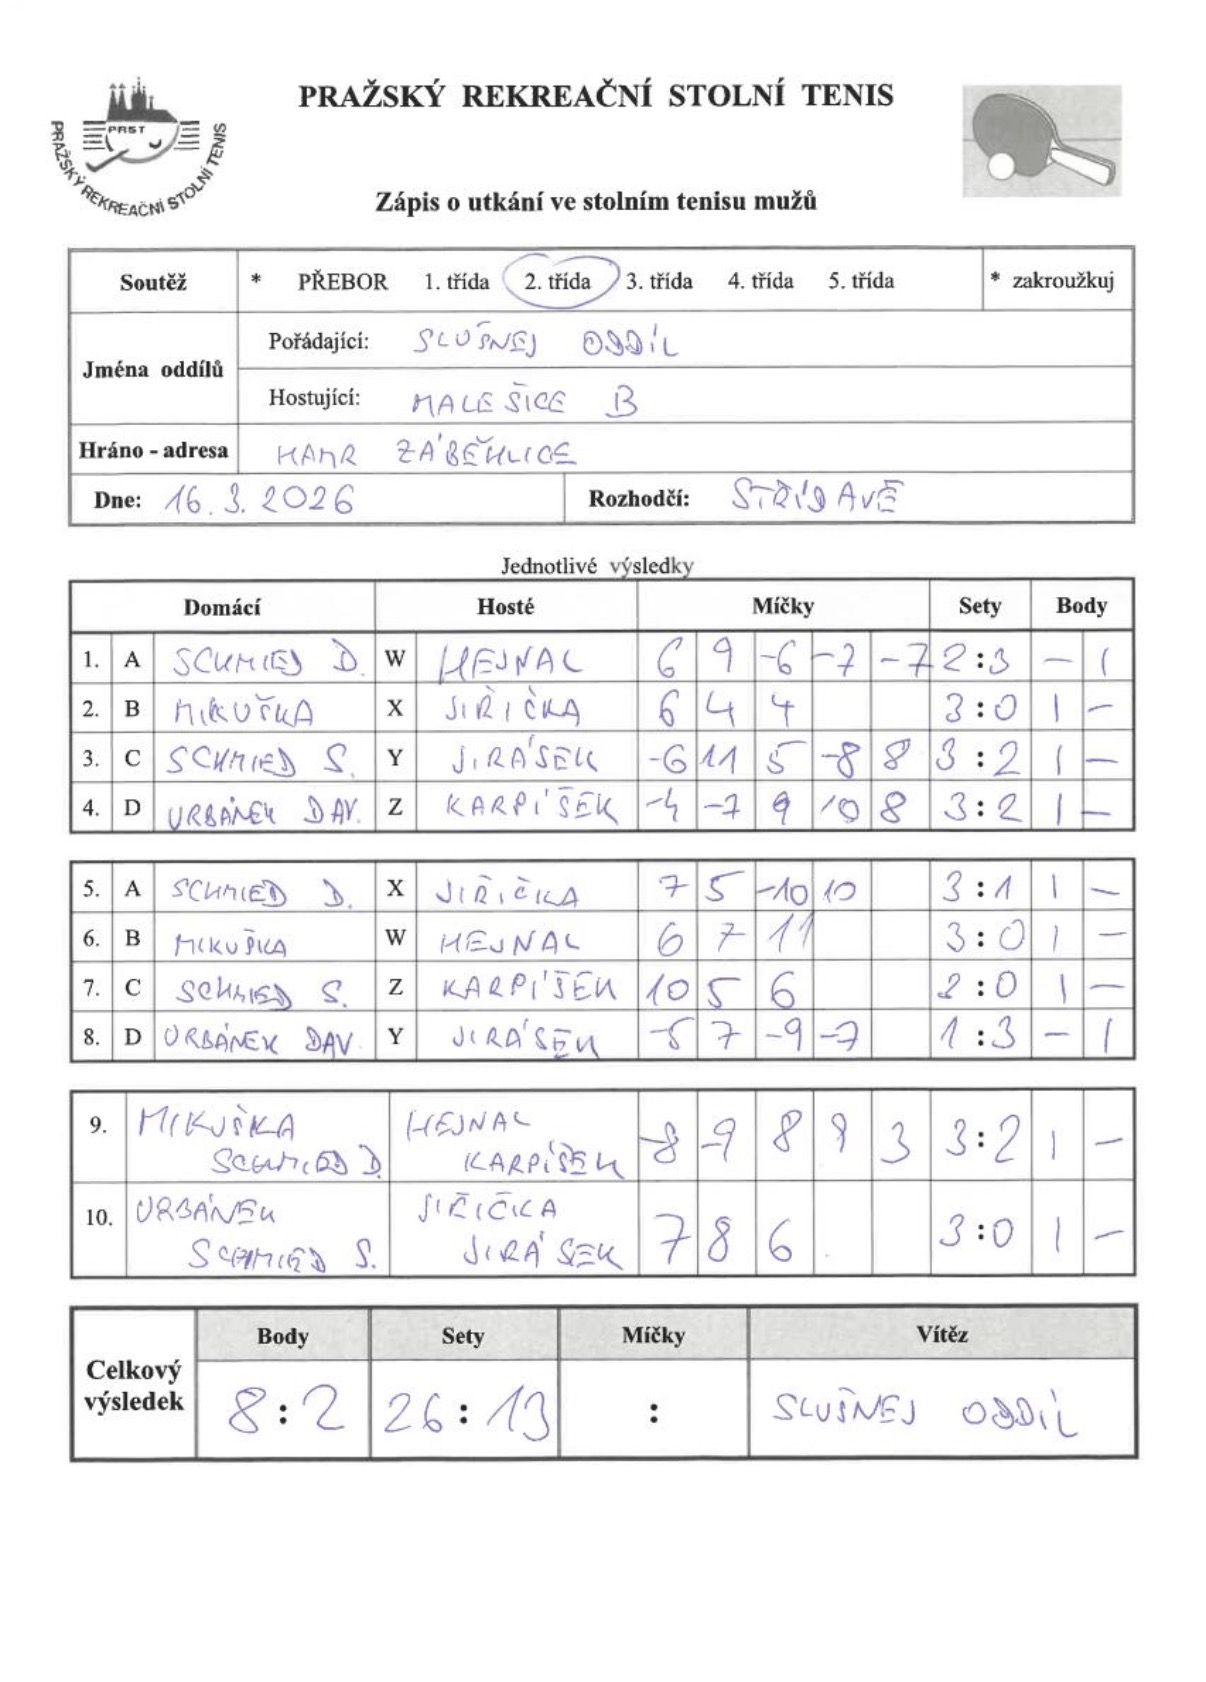 PRAŽSKÝ REKREAČNÍ STOLNÍ TENIS
PRST
PRAŽSKÝ REKREAČNÍ STOLNÍ TENIS
Zápis o utkání ve stolním tenisu mužů
Soutěž * PŘEBOR 1. třída 2. třída 3. třída 4. třída 5. třída * zakroužkuj
Jména oddílů
Pořádající: SLUŠNEJ ODDÍL
Hostující: MALEŠICE B
Hráno - adresa HAMR ZÁBĚHLICE
Dne: 16.3.2026 Rozhodčí: STŘÍDAVĚ
Jednotlivé výsledky
Domácí Hosté Míčky Sety Body
1. A SCHMIED D. W HEJNAL 6 9 -6 -7 -7 2:3 - 1
2. B MIKUŠKA X JIŘIČKA 6 4 4 3:0 1 -
3. C SCHMIED S. Y JIRÁSEK -6 11 5 -8 8 3:2 1 -
4. D URBÁNEK DAV. Z KARPÍŠEK -4 -7 9 10 8 3:2 1 -
5. A SCHMIED D. X JIŘIČKA 7 5 -10 10 3:1 1 -
6. B MIKUŠKA W HEJNAL 6 7 11 3:0 1 -
7. C SCHMIED S. Z KARPÍŠEK 10 5 6 :0 1 -
8. D URBÁNEK DAV. Y JIRÁSEK -5 7 -9 -7 1:3 - 1
9. MIKUŠKA HEJNAL -8 -9 8 9 3 3:2 1 -
SCHMIED D. KARPÍŠEK
10. URBÁNEK JIŘIČKA 7 8 6 3:0 1 -
SCHMIED S. JIRÁSEK
Celkový výsledek
Body Sety Míčky Vítěz
8:2 26:13 : SLUŠNEJ ODDÍL